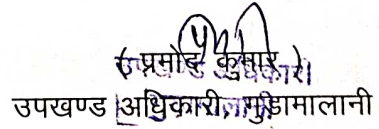 ( प्रमोद कुमार )
उपखण्ड अधिकारी, गुड़ामालानी